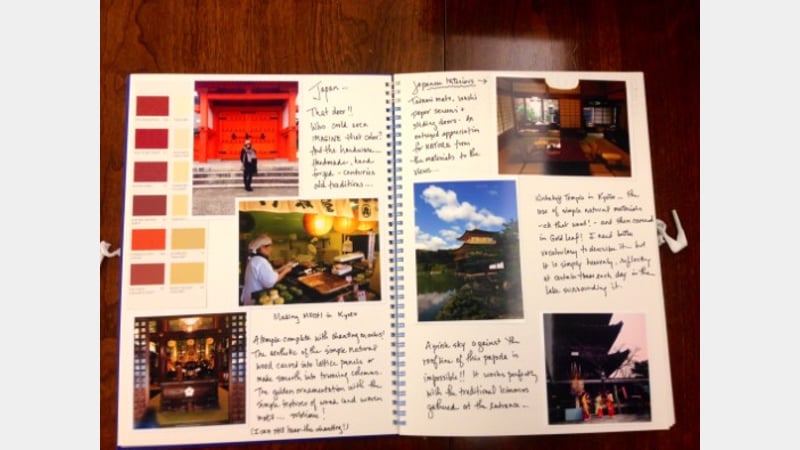 Japan...
That door!!
Who could even
IMAGINE that color?
And the hardware...
Handmade, hand
forged - centuries
old traditions...
Making MOCHI in Kyoto
A temple complete with chanting monks!
The aesthetic of the simple natural
wood carved into lattice panels or
made smooth into columns.
The golden ornamentation with the
simple textures of wood and woven
mats... sublime!
(I can still hear the chanting!)
Japanese Interiors →
Tatami mats, washi
paper screens &
sliding doors - An
appreciation
for NATURE from
the materials to the
views...
Kinkakuji Temple in Kyoto... the
use of simple natural materials
- oh that wood! - and then covered
in Gold leaf! I need better
vocabulary to describe it but
it is simply heavenly, reflecting
at certain times each day in the
lake surrounding it.
A pink sky against the
roofline of this pagoda is
impossible!! It works perfectly
with the traditional kimonos
gathered at the entrance...